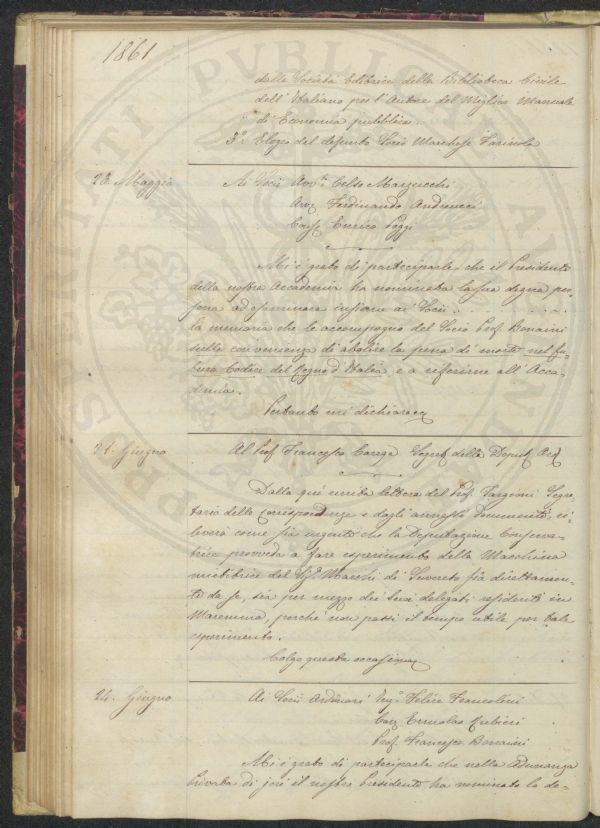 1861
dalla Società Editrice della Biblioteca Civile
dell'Italiano per l'Autore del Miglior Manuale
di Economia pubblica.
3º. Elogio del defunto Socio Marchese Farinola
28. Maggio
Ai Socii Avv. Celso Marzucchi
Avv. Ferdinando Andreucci
Cons. Enrico Poggi
Mi è grato di parteciparle che il Presidente
della nostra Accademia ha nominata la sua degna per-
sona ad esaminare insieme ai Socii . . . . . .
la memoria che le accompagno del Socio Prof. Bonaini
sulla convenienza di abolire la pena di morte nel fu-
turo Codice del Regno d'Italia e a riferirne all'Acca-
demia.
Pertanto mi dichiaro
21. Giugno
Al Prof. Francesco Carega Segret. della Deput.
Dalla quì unita lettera del Prof. Targioni Segre-
tario delle Corrispondenze e dagli annessi documenti, ri-
leverà come sia urgente che la Deputazione Conserva-
trice provveda a fare esperimento della Macchina
mietitrice del Sig. di Suvereto sia direttamen-
te da se, sia per mezzo dei suoi delegati residenti in
Maremma, perchè non passi il tempo utile per tale
esperimento.
Colgo questa occasione
24. Giugno
Ai Socii Ordinari Ing. Felice Francolini
Cav. Ermolao Rubieri
Prof. Francesco Bonaini
Mi è grato di parteciparle che nella Adunanza
privata di jeri il nostro Presidente ha nominato la de-